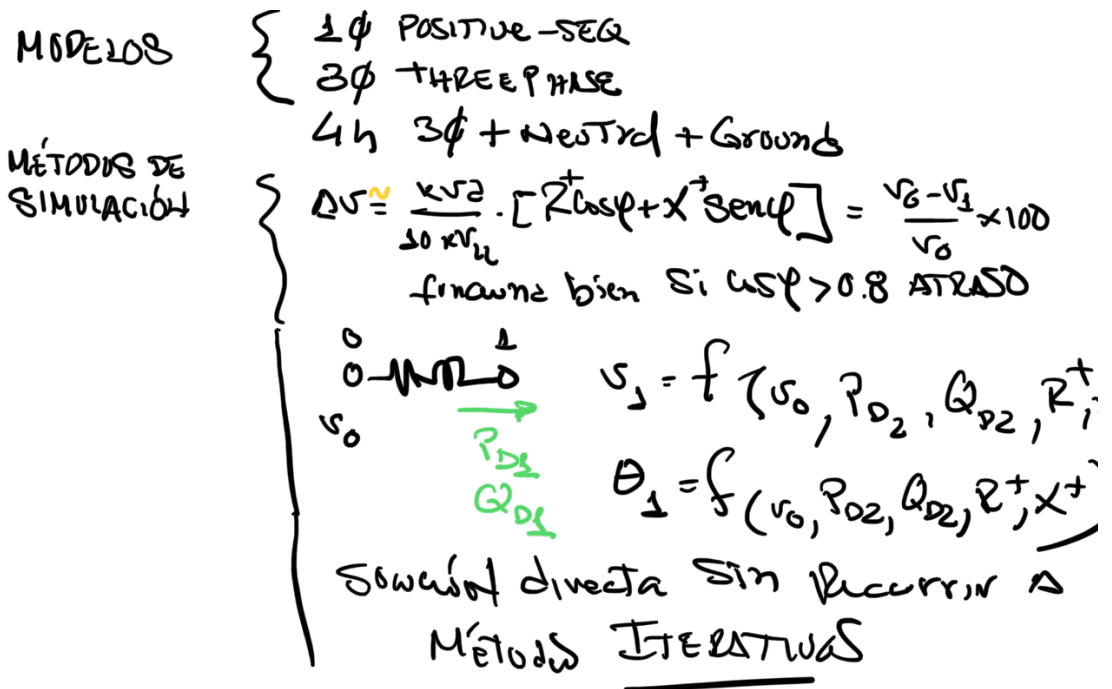 MODELOS
1φ POSITIVE-SEQ
3φ THREE PHASE
4h 3φ + Neutral + Ground
MÉTODOS DE
SIMULACIÓN
ΔV ≅ kVA / 10 kV_LL · [R⁺cosφ + X⁺senφ] = (V₀ - V₁) / V₀ × 100
funciona bien Si cosφ > 0.8 ATRASO
0 1
V₀
P_D1
Q_D1
V₁ = f (V₀, P_D2, Q_D2, R⁺,
θ₁ = f (V₀, P_D2, Q_D2, R⁺, X⁺)
Solución directa Sin Recurrir A
Métodos ITERATIVOS